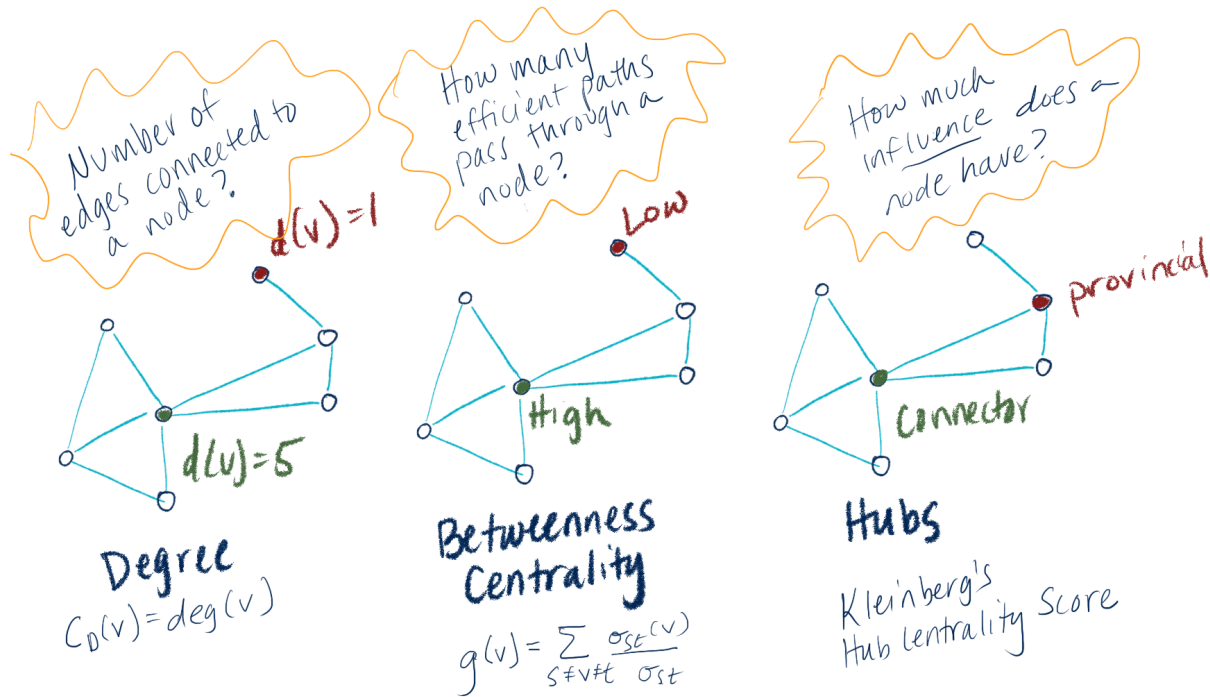 Number of
edges connected to
a node?
d(v)=1
d(v)=5
Degree
C_D(v)=deg(v)
How many
efficient paths
pass through a
node?
Low
High
Betweenness
Centrality
g(v)= ∑_{s≠v≠t} σ_st(v)/σ_st
How much
influence does a
node have?
provincial
Connector
Hubs
Kleinberg's
Hub Centrality Score